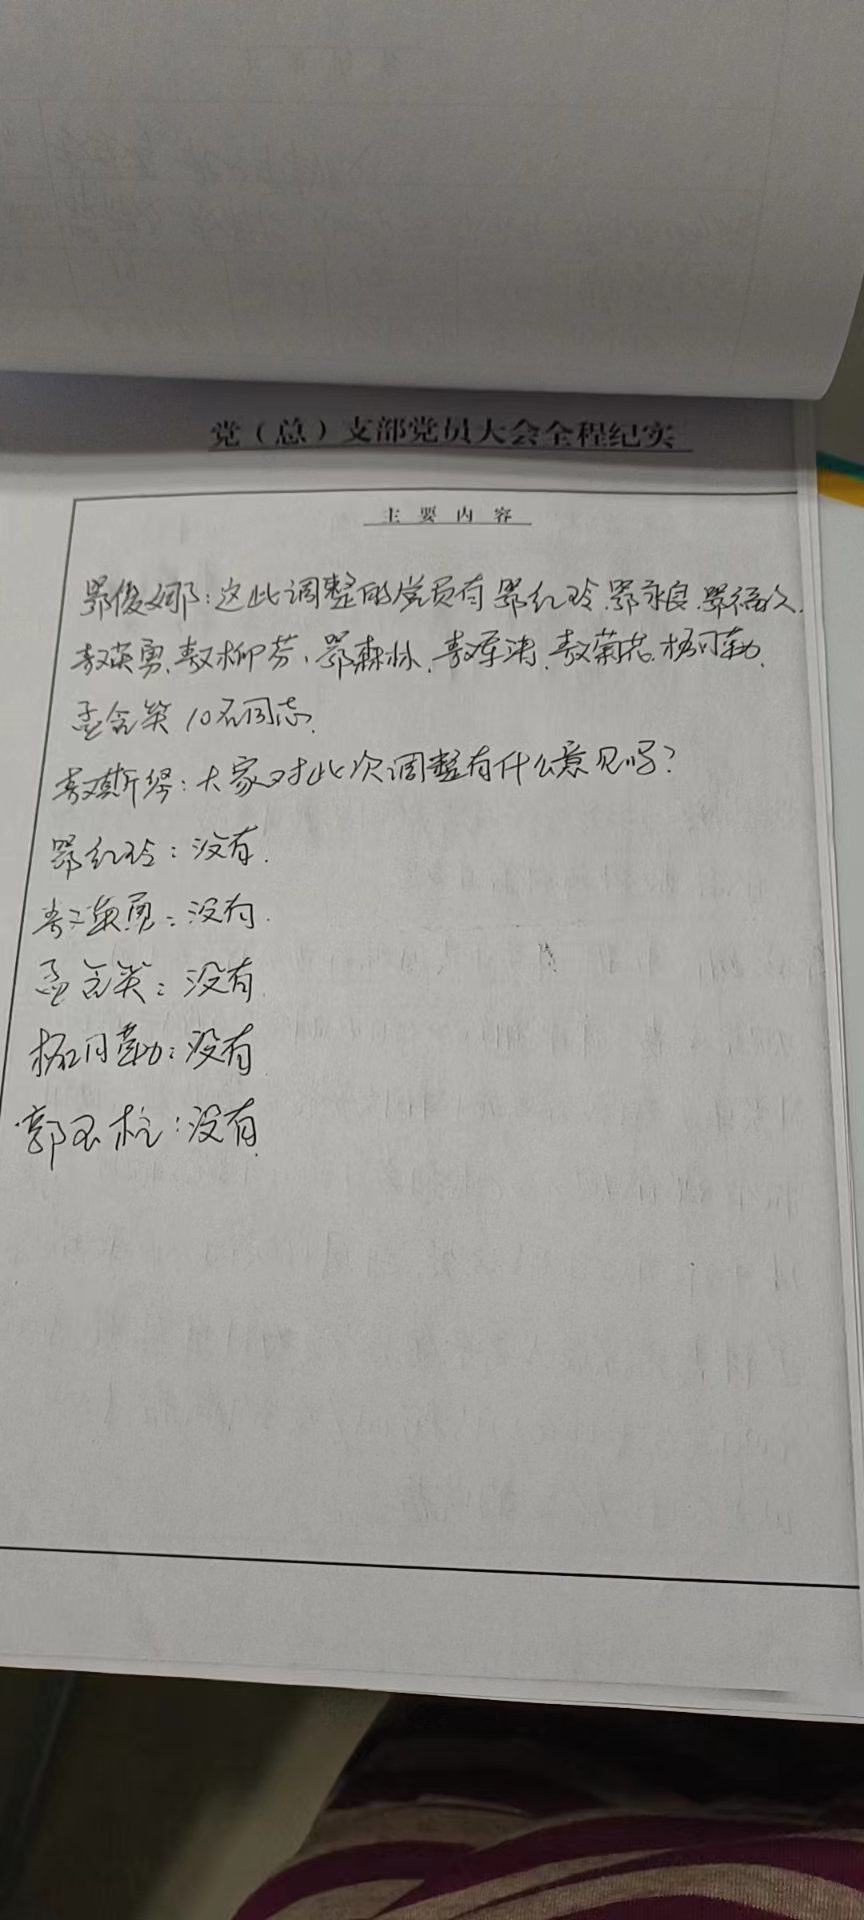 党（总）支部党员大会全程纪实
主 要 内 容
鄂俊娜：这此调整的党员有鄂红玲、鄂永良、鄂福久、
敖英勇、敖柳芬、鄂森林、敖军涛、敖菊花、杨月勤、
孟含笑10名同志.
敖斯琴：大家对此次调整有什么意见吗？
鄂红玲：没有.
敖英勇：没有.
孟含笑：没有
杨月勤：没有
郭玉柱：没有